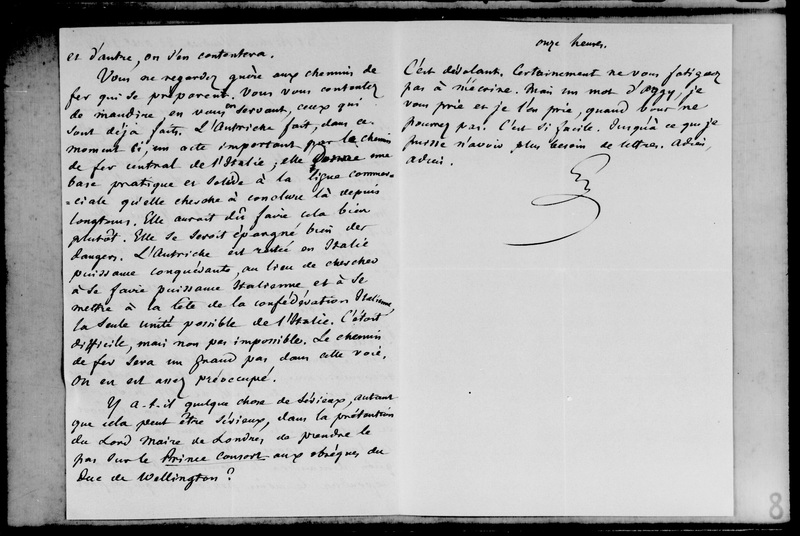 et d'autre, on s'en contentera.
Vous ne regardez guère aux chemins de
fer qui se préparent. Vous vous contentez
de maudire, en vous en servant, ceux qui
sont déjà faits. L'Autriche fait, dans ce
moment ci, un acte important par le chemin
de fer central de l'Italie; elle donne une
base pratique et solide à la ligue commer-
=ciale qu'elle cherche à conclure là depuis
longtems. Elle aurait dû faire cela bien
plutôt. Elle se seroit épargné bien des
dangers. L'Autriche est restée en Italie
puissance conquérante, au lieu de chercher
à se faire puissance Italienne et à se
mettre à la tête de la confédération Italienne,
la seule unité possible de l'Italie. C'étoit
difficile, mais non pas impossible. Le chemin
de fer sera un grand pas dans cette voie.
On en est assez préoccupé.
Y a-t-il quelque chose de sérieux, autant
que cela peut être sérieux, dans la prétention
du Lord Maire de Londres de prendre le
pas sur le Prince Consort aux obsèques du
Duc de Wellington?
onze heures.
C'est désolant. Certainement ne vous fatiguez
pas à m'écrire. Mais un mot d'Aggy, je
vous prie et je l'en prie, quand vous ne
pourrez pas. C'est si facile. Jusqu'à ce que je
puisse n'avoir plus besoin de lettres. Adieu,
adieu.
8